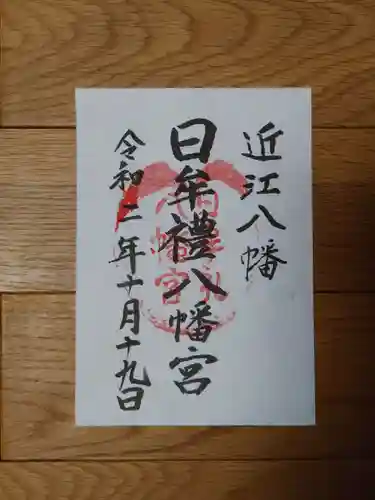 近江八幡
日牟禮八幡宮
令和二年十月十九日